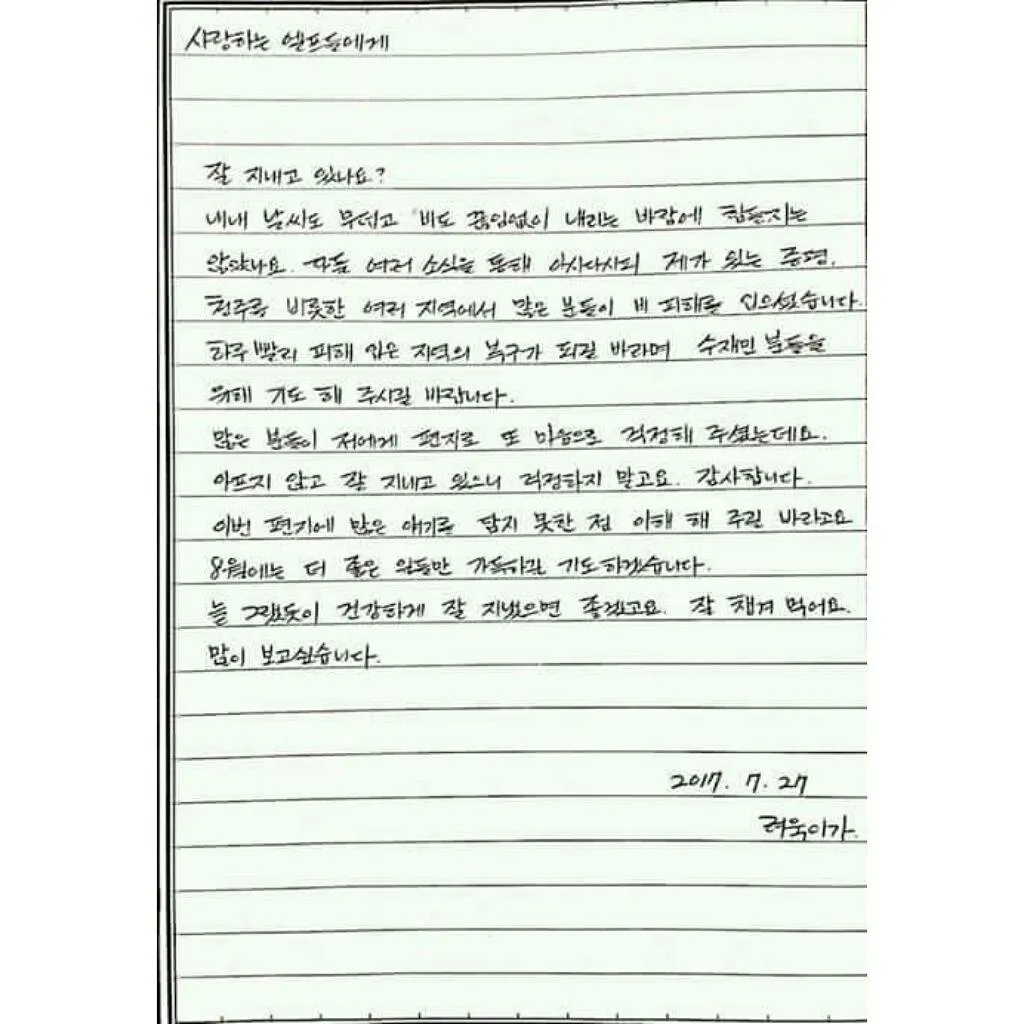 사랑하는 엘프들에게
잘 지내고 있나요?
내내 날씨도 무덥고 비도 끊임없이 내리는 바람에 힘들지는
않았나요. 다들 여러 소식을 통해 아시다시피 제가 있는 증평,
청주를 비롯한 여러 지역에서 많은 분들이 비 피해를 입으셨습니다.
하루 빨리 피해 입은 지역의 복구가 되길 바라며 수재민 분들을
위해 기도 해 주시길 바랍니다.
많은 분들이 저에게 편지로 또 마음으로 걱정해 주셨는데요.
아프지 않고 잘 지내고 있으니 걱정하지 말고요. 감사합니다.
이번 편지에 많은 얘기를 담지 못한 점 이해 해 주길 바라고요
8월에는 더 좋은 일들만 가득하길 기도하겠습니다.
늘 그랬듯이 건강하게 잘 지냈으면 좋겠고요. 잘 챙겨 먹어요.
많이 보고싶습니다.
2017. 7. 27
려욱이가.